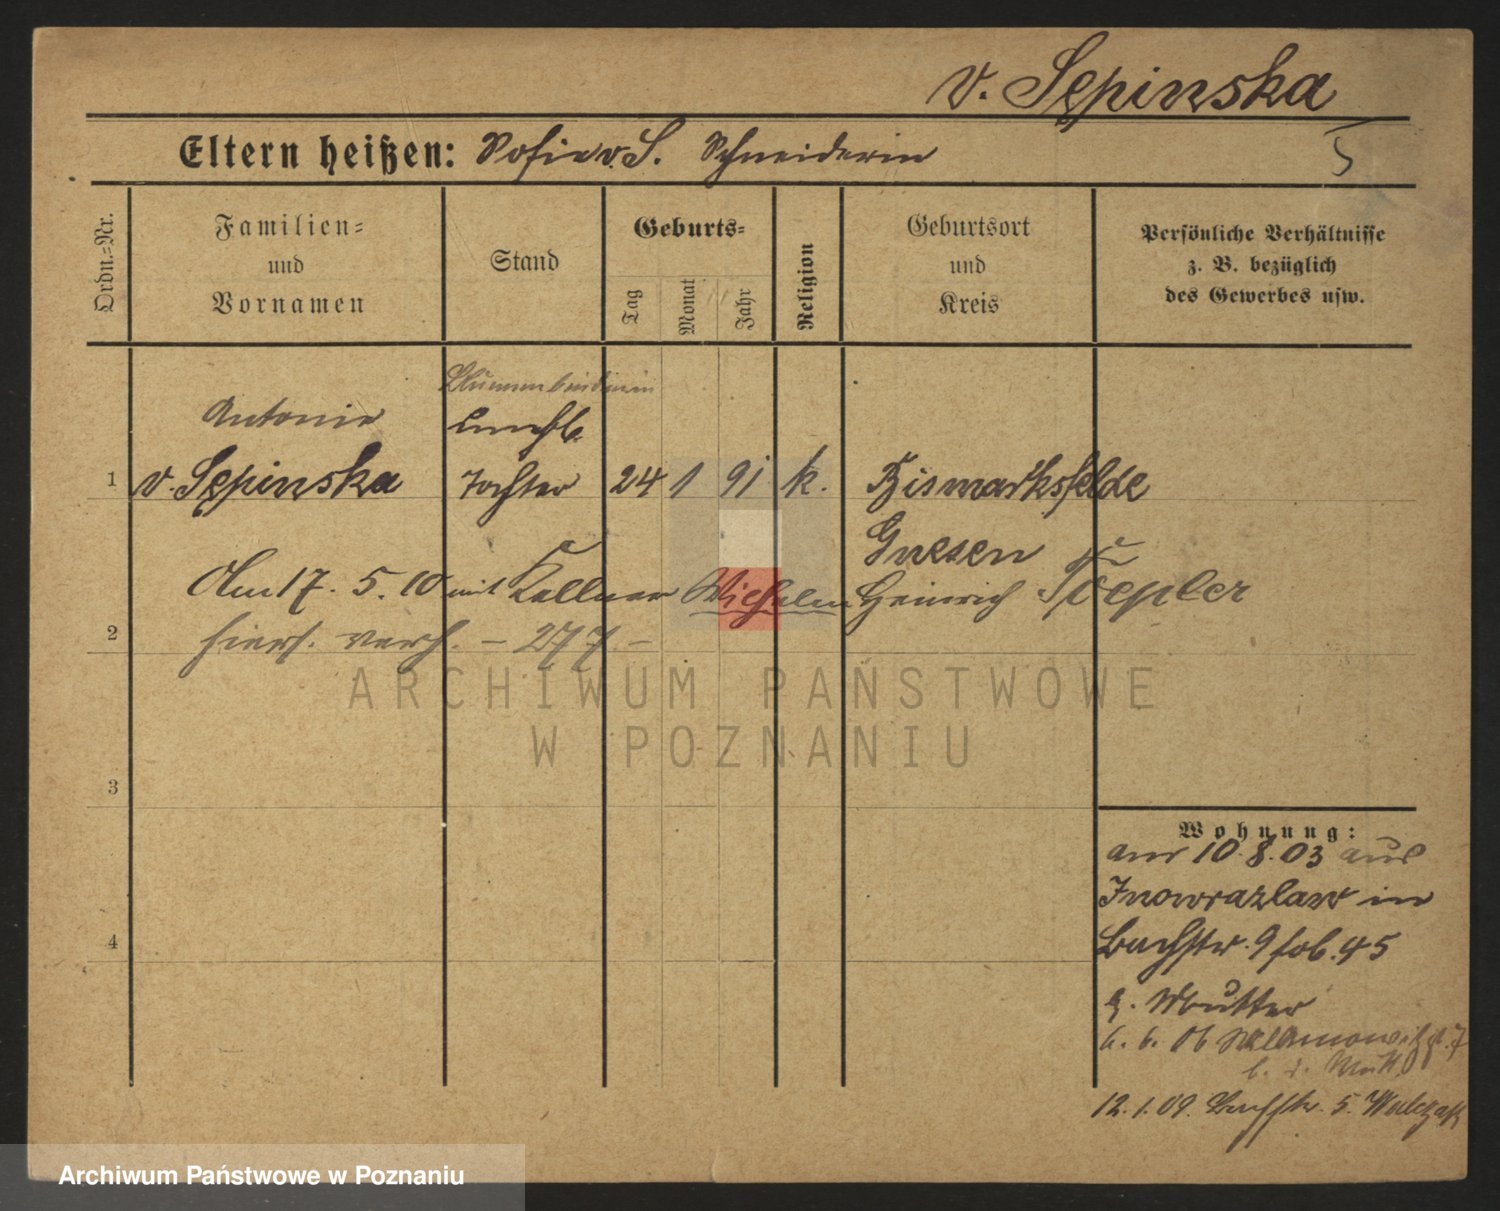 v. Sępinska
Eltern heißen: Sofie v. S. Schneiderin
5
Ordn.-Nr.
Familien-
und
Vornamen
Stand
Geburts-
Tag
Monat
Jahr
Religion
Geburtsort
und
Kreis
Persönliche Verhältnisse
z. B. bezüglich
des Gewerbes usw.
Blumenbinderin
Antonie
unehl.
1 v. Sępinska Tochter 24 1 91 k. Bismarksfelde
Gnesen
Am 17. 5. 10 mit Kellner Wilhelm Heinrich Töpler
2 hiers. verh. – 277. –
ARCHIWUM PAŃSTWOWE
W POZNANIU
3
Wohnung:
am 10. 8. 03 aus
Inowrazlaw in
4
Bachstr. 9 fol. 45
z. Mutter
6. 6. 06
b. d. Mutt.
12. 1. 09. Bachstr. 5. Walczak
Archiwum Państwowe w Poznaniu